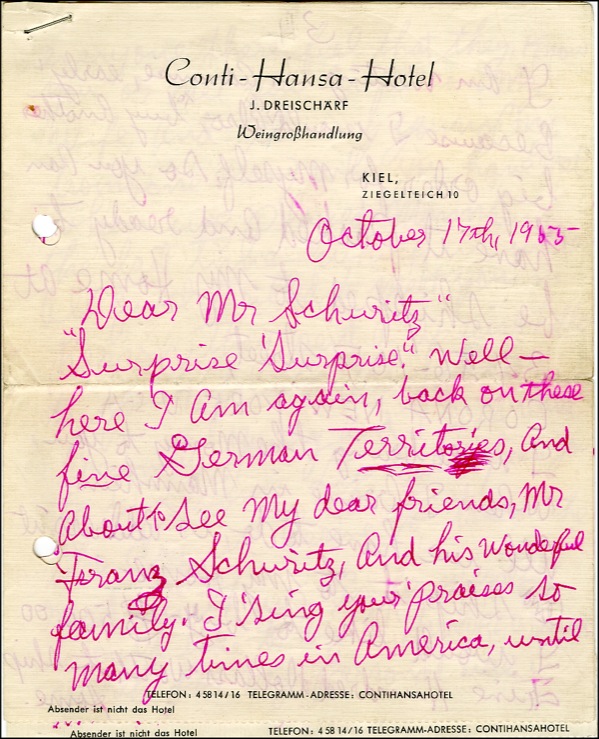 Conti-Hansa-Hotel
J. DREISCHÄRF
Weingroßhandlung
KIEL,
ZIEGELTEICH 10
October 17th, 1955
Dear Mr Schuritz"
"Surprise 'Surprise." Well—
here I Am again, back on these
fine German Territories, And
About to see My dear friends, Mr
Franz Schuritz, And his wonderful
family. I 'sing your' praises so
many times in America, until
TELEFON: 4 58 14 / 16 TELEGRAMM-ADRESSE: CONTIHANSAHOTEL
Absender ist nicht das Hotel
TELEFON: 4 58 14 / 16 TELEGRAMM-ADRESSE: CONTIHANSAHOTEL
Absender ist nicht das Hotel